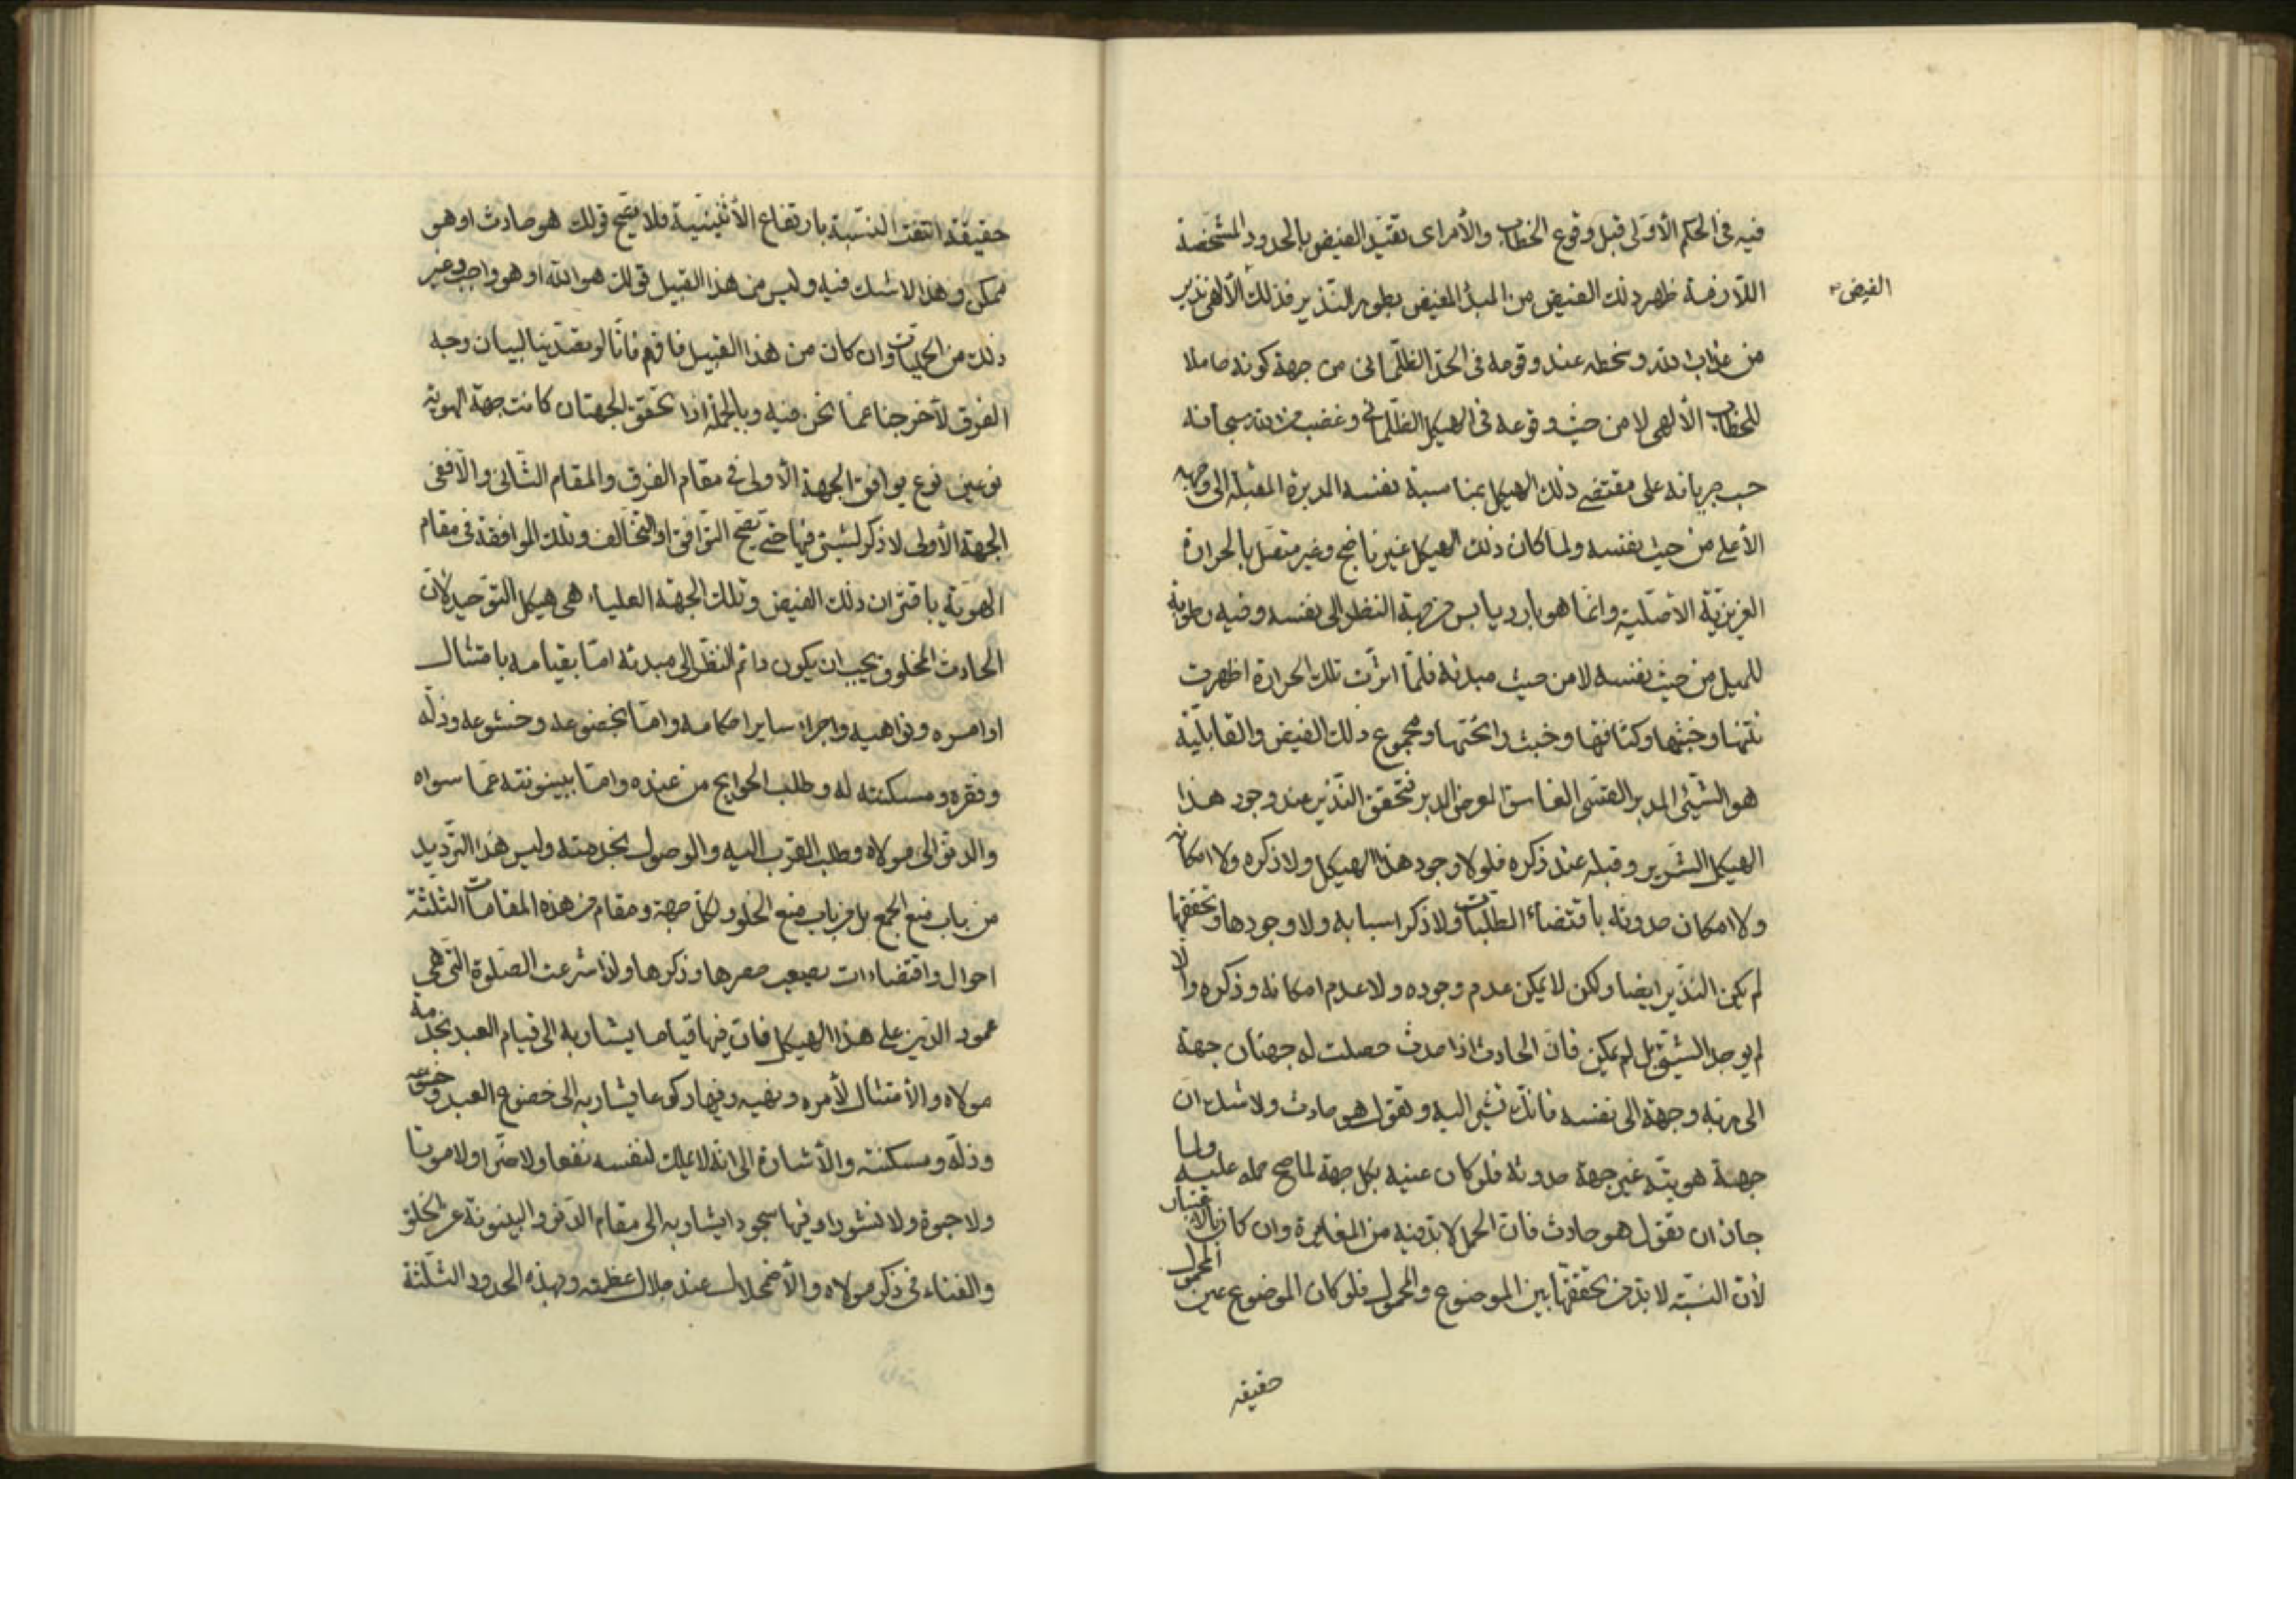 فيه في الحكم الأوّلى قبل وقوع الخطاب والأمر اى تقيّد الفيض بالحدود المشخصة
الفيض
اللازمة ظهر ذلك الفيض من المبدأ المفيض بطور النذير فذلك الألهى نذير
من عذاب الله وسخطه عند وقوعه فى الحدّ الظلمانى من جهة كونه حاملا
للخطاب الألهى لا من حيث وقوعه فى الهيكل الظلمانى وغضب من الله سبحانه
حسب جريانه على مقتضى ذلك الهيكل بمناسبة نفسه المدبرة المقبلة الى وجهه
الأعلى من حيث نفسه ولما كان ذلك الهيكل غير ناضج وغير متصل بالحرارة
الغريزيّة الأصليّة وانما هو بارد يابس من جهة النظر الى نفسه وفيه رطوبة
للميل من حيث نفسه لا من حيث مبدئه فلمّا اثرت تلك الحرارة اظهرت
نتنها وخبثها وكثافتها وخبث رائحتها ومجموع ذلك الفيض والقابليّة
هو الشيئ المدبر الفاسق المعرض المدبر فتحقق النّذير عند وجود هذا
الهيكل الشرير وقبله عند ذكره فلولا وجود هذا الهيكل ولا ذكره ولا امكانه
ولا امكان حدوثه باقتضاء الطلبات ولا ذكر اسبابه ولا وجودها وتحققها
لم يكن النذير ايضا ولكن لا يمكن عدم وجوده ولا عدم امكانه وذكره والا
لم يوجد الشيئ بل لم يمكن فانّ الحادث اذا حدث حصلت له جهتان جهة
الى ربّه وجهة الى نفسه فانك تشير اليه وتقول هو حادث ولا شك ان
جهة هويّته غير جهة حدوثه فلو كان عينه بكل جهة لما صح حمله عليه ولما
جاز ان تقول هو حادث فان الحمل لا بدّ فيه من المغايرة وان كان بالاعتبار
لأن النسبة لا بد من تحققها بين الموضوع والمحمول فلو كان الموضوع عين المحمول
حقيقه
حقيقة انتفت النسبة بارتفاع الأثنينيّة فلا يصحّ قولك هو حادث او هو
ممكن وهذا لا شك فيه وليس من هذا القبيل قولك هو الله او هو واجب وغير
ذلك من الحمليات وان كان من هذا القبيل فافهم فانّا لو تصدّينا لبيان وجه
الفرق لأخرجنا عمّا نحن فيه وبالجملة اذا تحقق الجهتان كانت جهة الهويّة
نوعين نوع يوافق الجهة الأولى فى مقام الفرق والمقام الثّانى والا ففى
الجهة الأولى لا ذكر لشيئ فيها حتى يصحّ التوافق او التخالف وتلك الموافقة فى مقام
الهويّة باقتران ذلك الفيض وتلك الجهة العلياء هى هيكل التوحيد لأنّ
الحادث المخلوق يجب ان يكون دائم النظر الى مبدئه امّا بقيامه بامتثال
اوامره ونواهيه واجراء ساير احكامه وامّا بخضوعه وخشوعه وذلّه
وفقره ومسكنته له وطلب الحوايج من عنده وامّا ببينونته عمّا سواه
والدنوّ الى مولاه وطلب القرب اليه والوصول بخدمته وليس هذا الترديد
من باب منع الجمع بل من باب منع الخلو ولكلّ جهة ومقام من هذه المقامات الثّلثة
احوال واقتضاءات يصعب حصرها وذكرها ولذا شرعت الصلوة التى هى
عمود الدّين على هذا الهيكل فانّ فيها قياما يشار به الى قيام العبد بخدمة
مولاه والأمتثال لأمره ونهيه وفيها ركوعا يشار به الى خضوع العبد وخشوعه
وذلّه ومسكنته والأشارة الى انه لا يملك لنفسه نفعا ولا ضرّا ولا موتا
ولا حيوة ولا نشورا وفيها سجودا يشار به الى مقام الدّنو والبينونة عن الخلق
والفناء فى ذكر مولاه والأضمحلال عند جلال عظمته وبهذه الحدود الثلثة